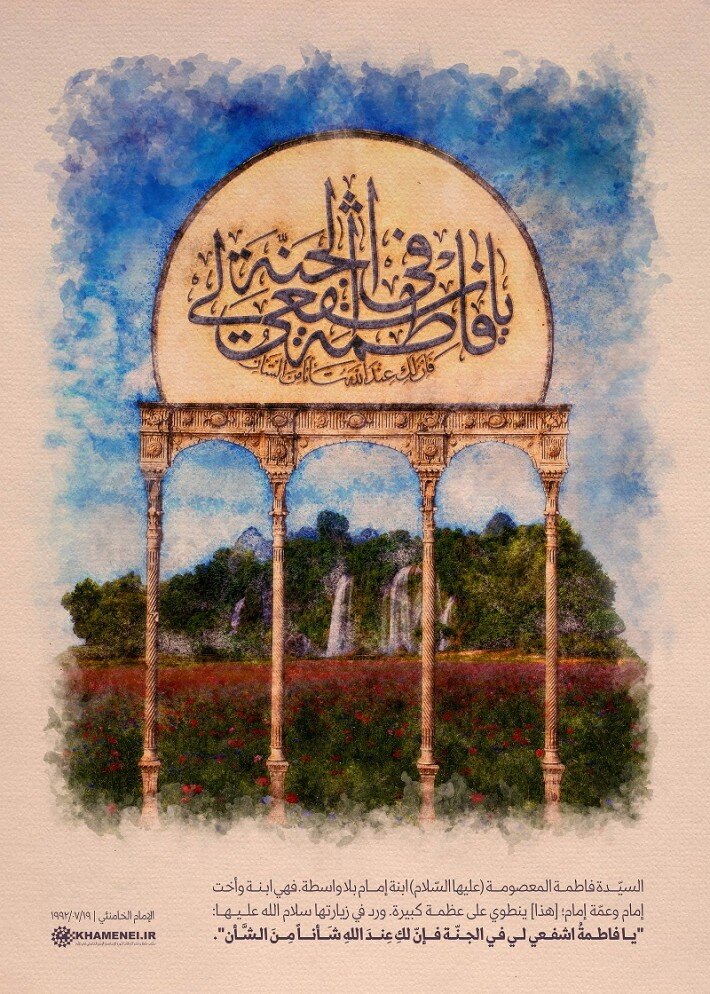 يا فاطمة اشفعي لي في الجنّة
فإنّ لكِ عند الله شأنًا من الشأن
السيّدة فاطمة المعصومة (عليها السّلام) ابنة إمام بلا واسطة. فهي ابنة وأخت
إمام وعمّة إمام؛ [هذا] ينطوي على عظمة كبيرة. ورد في زيارتها سلام الله عليها:
"يا فاطمةُ اشفعي لي في الجنّة فإنّ لكِ عِندَ اللهِ شَأناً مِنَ الشَّأن".
الإمام الخامنئي | ١٩٩٢/٠٧/١٩
KHAMENEI.IR